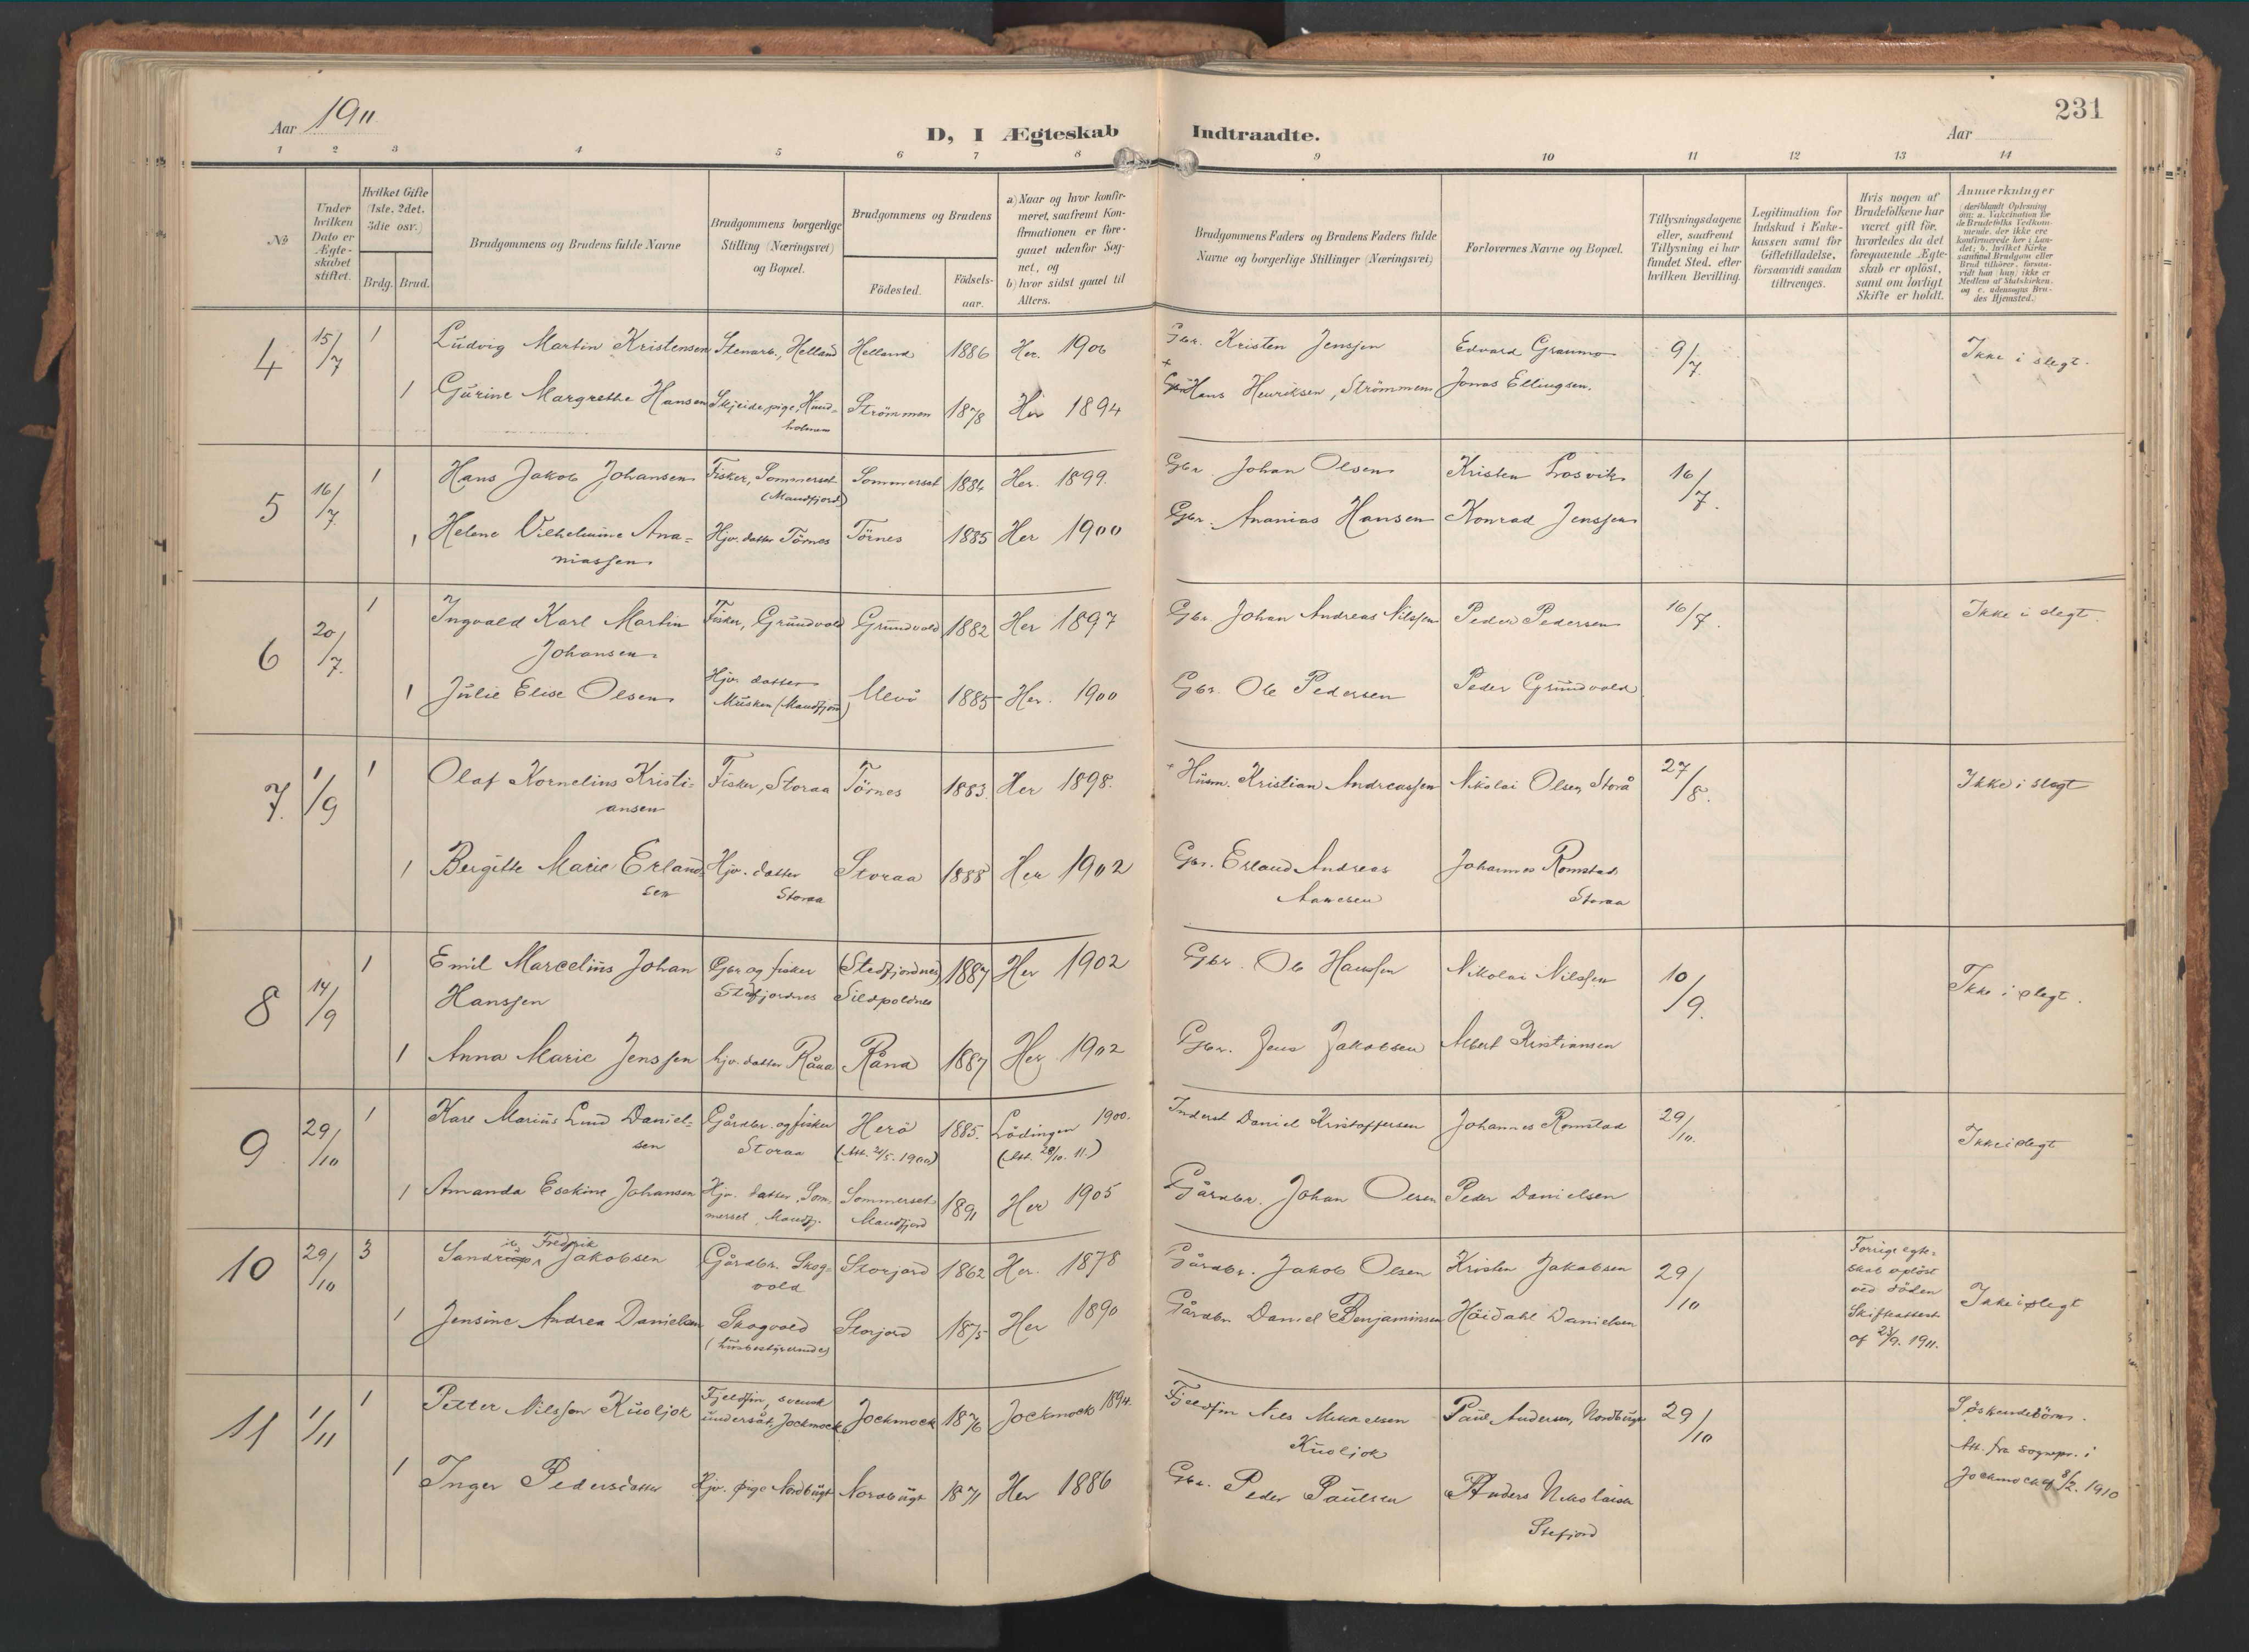 Aar 1911
D, I Ægteskab Indtraadte.
Aar
231
1 2 3 4 5 6 7 8 9 10 11 12 13 14
№
Under hvilken Dato er Ægteskabet stiftet.
Hvilket Gifte (1ste, 2det, 3die osv.)
Brdg. Brud.
Brudgommens og Brudens fulde Navne
Brudgommens borgerlige Stilling (Næringsvei) og Bopæl.
Brudgommens og Brudens
Födested.
Födselsaar.
a) Naar og hvor konfirmeret, saafremt Konfirmationen er foregaaet udenfor Sognet, og
b) hvor sidst gaaet til Alters.
Brudgommens Faders og Brudens Faders fulde Navne og borgerlige Stillinger (Næringsvei)
Forlovernes Navne og Bopæl.
Tillysningsdagene eller, saafremt Tillysning ei har fundet Sted, efter hvilken Bevilling.
Legitimation for Indskud i Enkekassen samt for Giftetilladelse, forsaavidt saadan tiltrænges.
Hvis nogen af Brudefolkene har været gift för, hvorledes da det foregaaende Ægteskab er oplöst, samt om lovligt Skifte er holdt.
Anmerkninger (deriblandt Oplysning om: a. Vakcination for de Brudefolks Vedkommende, der ikke ere konfirmerede her i Landet; b. hvilket Kirkesamfund Brudgom eller Brud tilhörer, forsaavidt han (hun) ikke er Medlem af Statskirken, og c. udensogns Brudes Hjemsted.)
4 15/7 1 Ludvig Martin Kristensen Stenarb., Helland Helland 1886 Her. 1906 Gbr. Kristen Jenssen Edvard Graumo 9/7. Ikke i slegt.
1 Gurine Margrethe Hansen Skjeidepige, Hundholmen Strömmen 1878 Her 1894 + Gbr Hans Henriksen, Strömmen Jonas Ellingsen.
5 16/7. 1 Hans Jakob Johansen Fisker, Sommerset (Mandfjord) Sommerset 1884 Her. 1899. Gbr. Johan Olsen Kristen Losvik 16/7.
1 Helene Vilhelmine Ana=
niassen Hjv. datter Törnes Törnes 1885 Her 1900 Gbr. Ananias Hansen Konrad Jenssen
6 20/7. 1 Ingvald Karl Martin
Johansen Fisker, Grundvold Grundvold 1882 Her 1897 Gbr. Johan Andreas Nilssen Peder Pedersen 16/7. Ikke i slegt.
1 Julie Elise Olsen Hjv. datter Musken (Mandfjord) Ulvö 1885 Her. 1900 Gbr. Ole Pedersen Peder Grundvold
7. 1/9 1 Olaf Kornelius Kristi=
ansen Fisker, Storaa Törnes 1883. Her 1898. + Husm. Kristian Andreassen Nikolai Olsen, Storå 27/8. Ikke i slegt
1 Bergitte Marie Erland
sen Hjv. datter Storaa Storaa 1888 Her 1902 Gbr. Erland Andreas Aanesen Johannes Romstad Storaa
8 14/9 1 Emil Marcelius Johan
Hanssen Gbr og fisker Stefjordnes (Stedfjordnes) Sildpoldnes 1887 Her 1902 Gbr. Ole Hanssen Nikolai Nilssen 10/9. Ikke i slegt.
1 Anna Marie Jenssen hjv. datter Råna Råna 1887 Her. 1902 Gbr. Jens Jakobsen Albert Kristiansen
9 29/10 1 Kare Marius Lund Daniel=
sen Gårdbr. og fisker Storaa Herö (Att. 2/5. 1900) 1885. Lödingen 1900. (Att. 28/10. 11.) Inderst Daniel Kristoffersen Johannes Romstad 29/10. Ikke i slegt
1 Amanda Eskine Johansen Hjv. datter, Sommerset, Mandfj. Sommerset Mandfjord 1891 Her 1905 Gårdbr. Johan Olsen Peder Danielsen
10 29/10 3 Fredrik Jakobsen Gårdbr. Skog=
vold Storjord 1862 Her. 1878 Gårdbr. Jakob Olsen Kristen Jakobsen 29/10 Forrige egte=
skab oplöst
ved döden
Skifteattest
af 23/9. 1911. Ikke i slegt
1 Jensine Andrea Danielsen Skogvold (husbestyrerinde) Storjord 1875 Her 1890 Gårdbr. Daniel Benjaminsen Höidahl Danielsen
11 1/11 1 Petter Nilsson Kuoljok Fjeldfin, svensk undersåt, Jockmock Jockmock 1876 Jockmock 1894. Fjeldfin Nils Mikaelsen Kuoljok Paul Andersen, Nordbugt 29/10 Söskendebörn.
Att. fra sognepr. i
Jockmock af 8/2. 1910
1 Inger Pedersdatter Hjv. pige Nordbugt Nordbugt 1871 Her 1886 Gbr. Peder Paulsen Anders Nikolaisen Stefjord